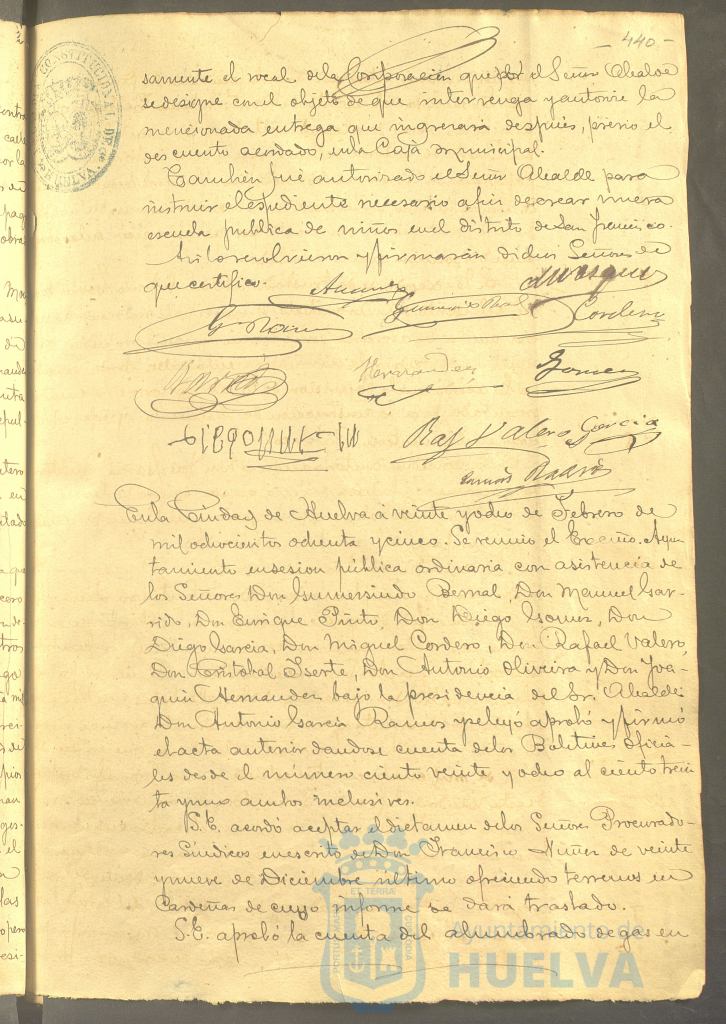 - 440 -
samente el vocal dela Corporación que por el Señor Alcalde
se designe con el objeto de que intervenga y autorice la
mencionada entrega que ingresará después, previo el
descuento acordado, en la Caja municipal.
También fué autorizado el Señor Alcalde para
instruir el espediente necesario a fin de crear nueva
escuela publica de niños en el distrito de San Francisco.
Asi lo resolvieron y firmarán dichos Señores de
que certifico.
Gumersindo Bernal
Cordero
Hernandez
Gomez
Raf Valero Garcia
En la Ciudad de Huelva á veinte y ocho de Febrero de
mil ochocientos ochenta y cinco. Se reunió el Excmo. Ayun
tamiento en sesion pública ordinaria con asistencia de
los Señores Don Gumersindo Bernal, Don Manuel Gar-
rido, Don Enrique Pinto, Don Diego Gomez, Don
Diego Garcia, Don Miguel Cordero, Don Rafael Valero,
Don Cristobal Iserte, Don Antonio Oliveira y Don Joa-
quin Hernandez bajo la presidencia del Sr. Alcalde
Don Antonio Garcia Ramos y se leyó aprobó y firmó
el acta anterior dandose cuenta delos Boletines oficia-
les desde el número ciento veinte y ocho al ciento trein
ta y uno ambos inclusives.
S.E. acordó aceptar el dictamen delos Señores Procurado-
res Síndicos en escrito de Don Francisco Nuñez de veinte
y nueve de Diciembre ultimo ofreciendo terrenos en
Cardeñas de cuyo informe se dará traslado.
S.E. aprobó la cuenta del alumbrado de gas en
Ayuntamiento de
HUELVA